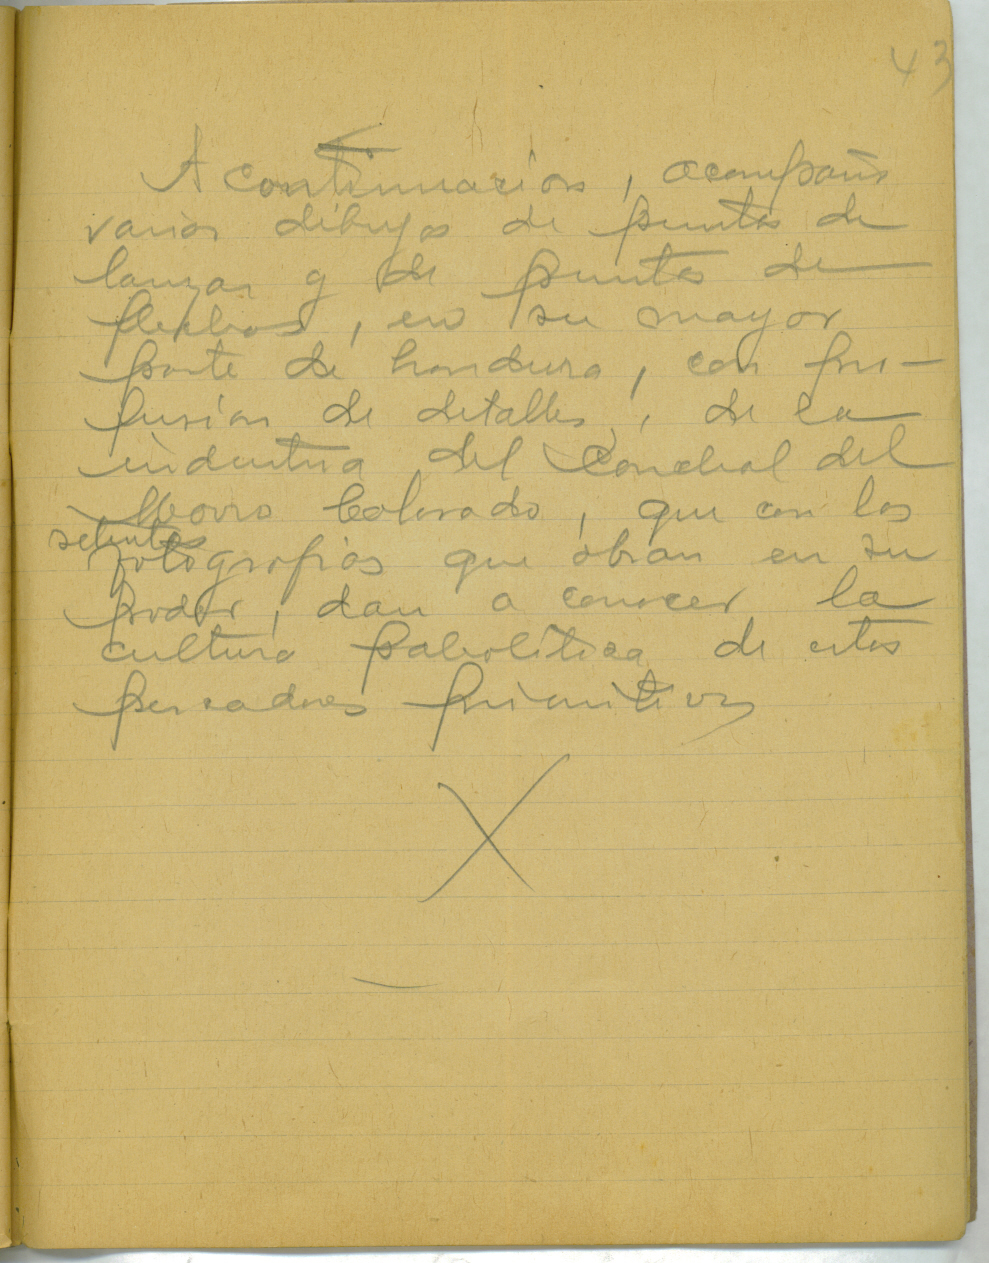 43
A continuacion, acompaño
varios dibujos de puntas de
lanzas y de puntas de
flechas, en su mayor
parte de hondura, con pro-
fusion de detalles, de la
industria del Conchal del
Morro Colorado, que con las
setentas
fotografias que obran en su
poder, dan a conocer la
cultura paleolitica de estos
pescadores primitivos
X